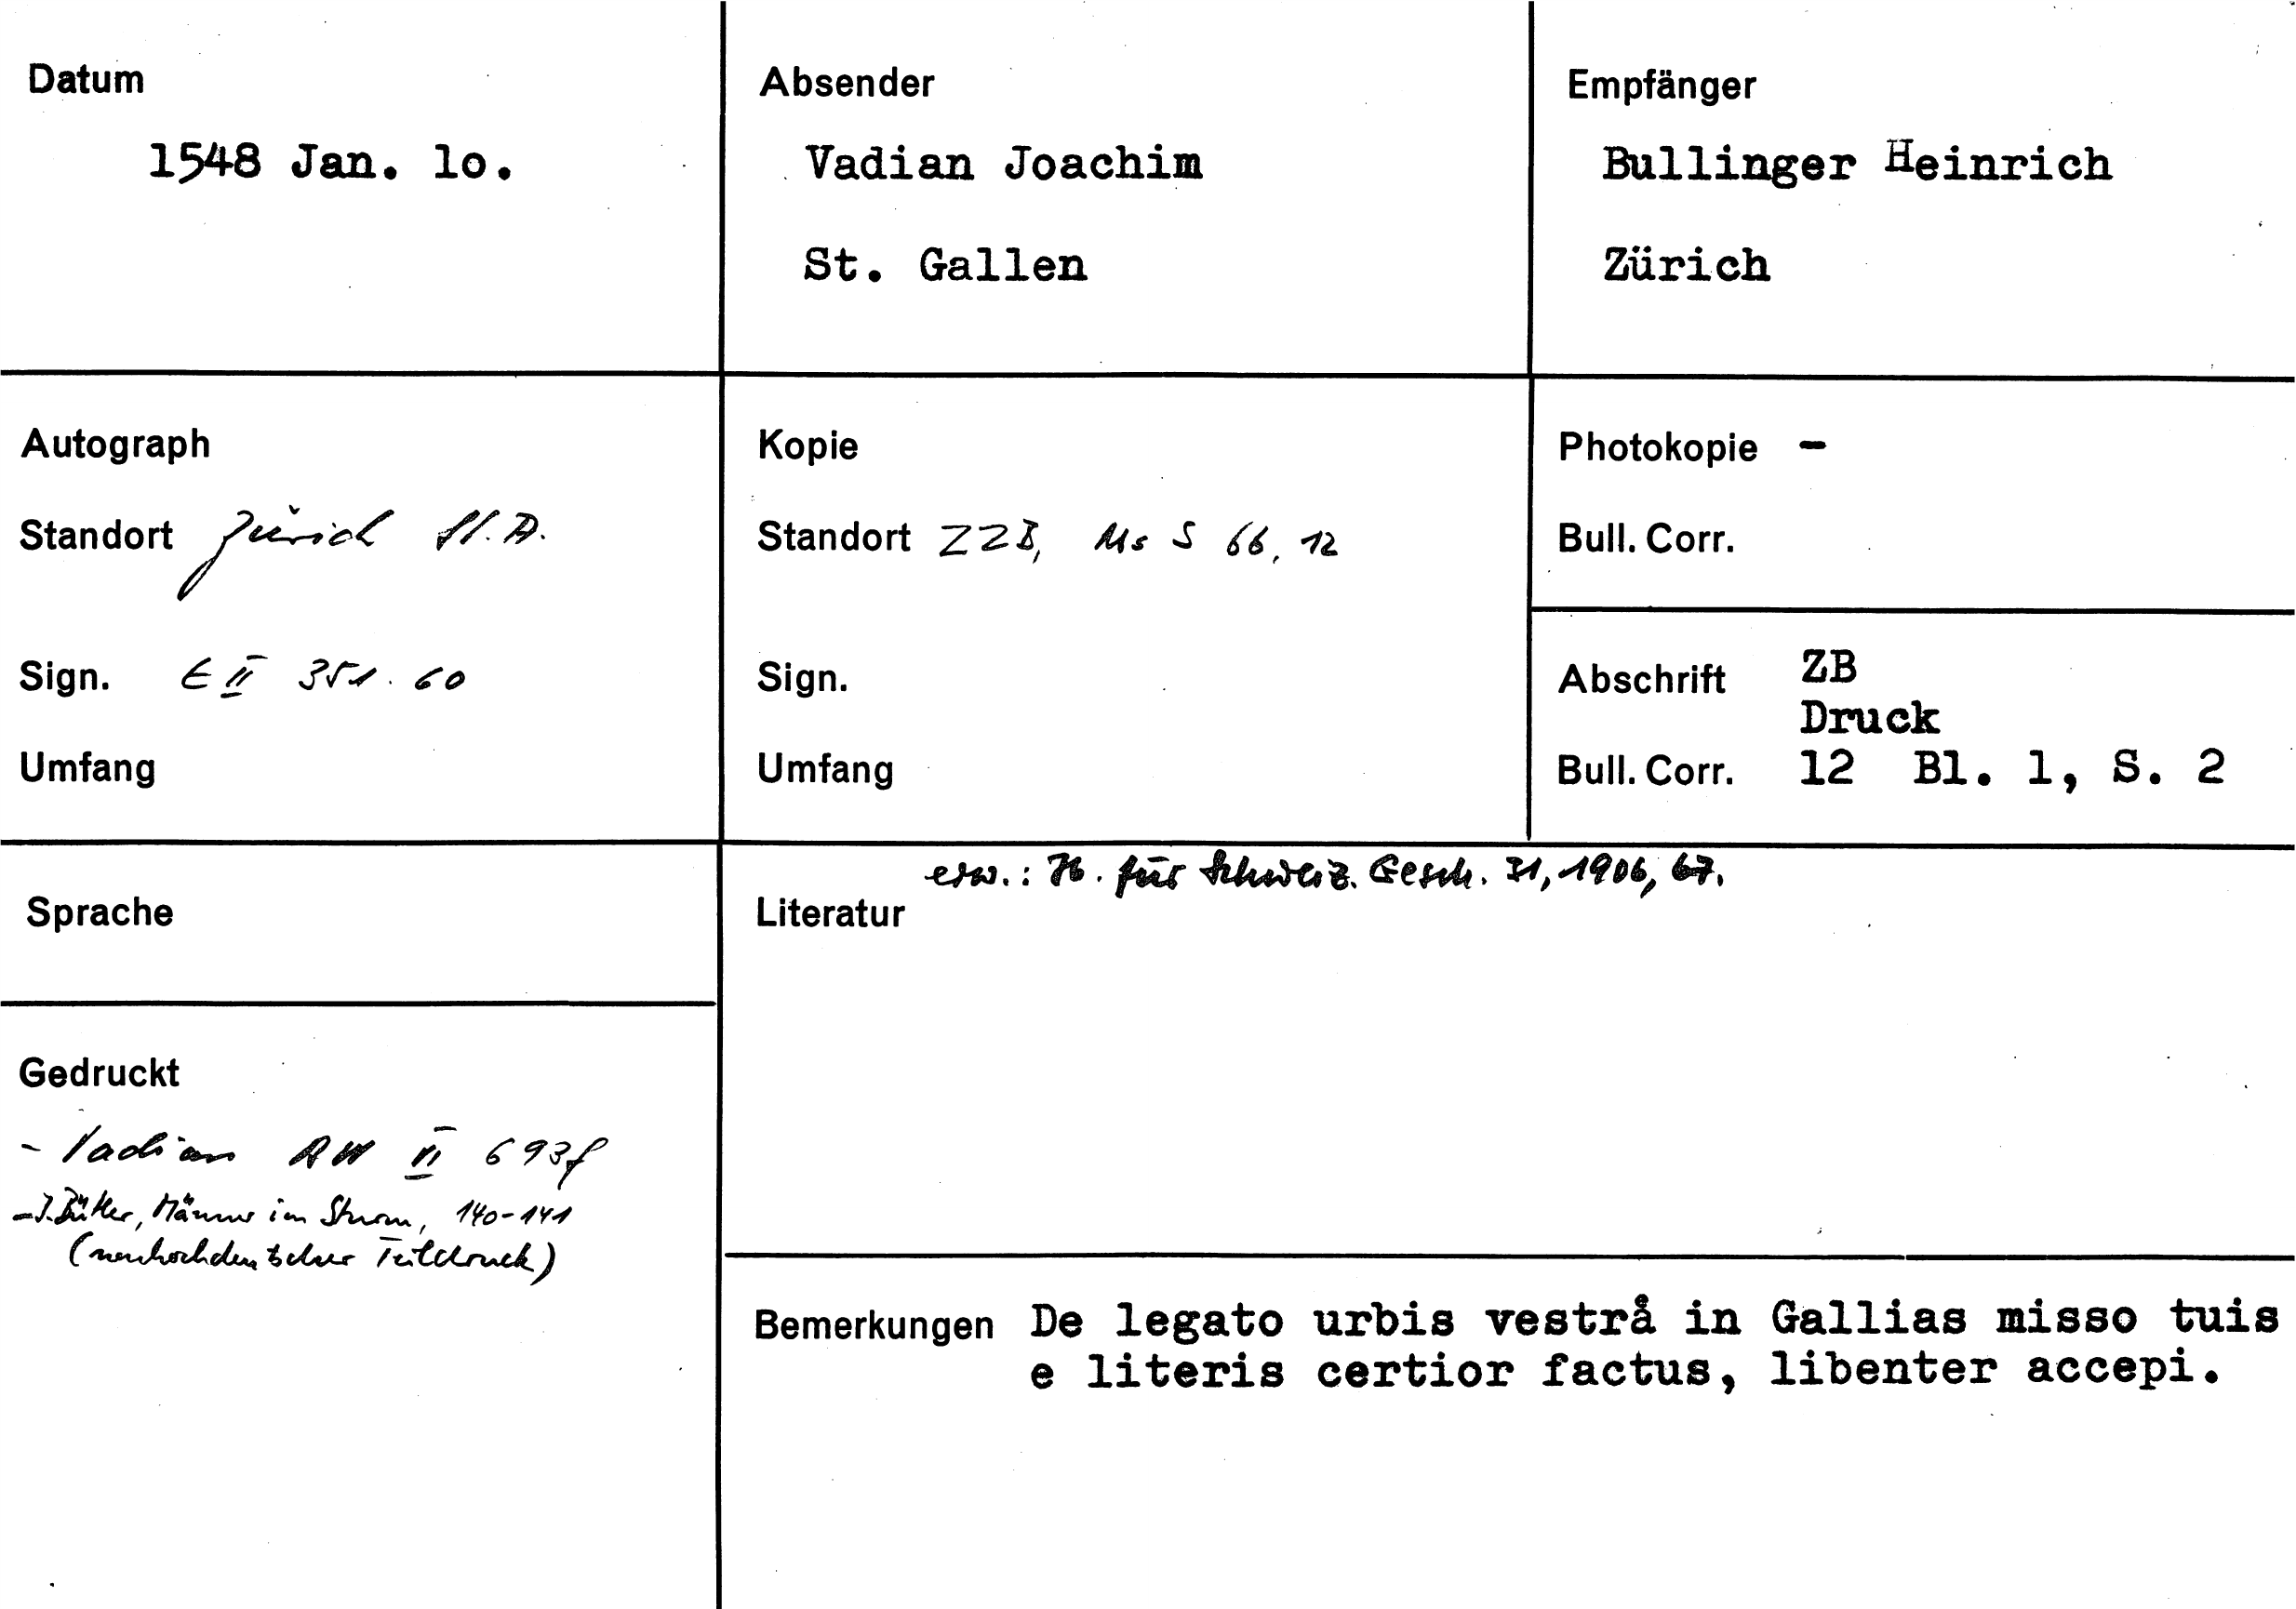 Datum
1548 Jan. lo.
Absender
Vadian Joachim
St. Gallen
Empfänger
Bullinger Heinrich
Zürich
Autograph
Standort Zürich St. A.
Sign. E II 351. 60
Umfang
Kopie
Standort ZZB, Ms S 66, 12
Sign.
Umfang
Photokopie -
Bull. Corr.
Abschrift ZB
Druck
Bull. Corr. 12 Bl. 1, S. 2
Sprache
Gedruckt
- Vadian RW II 693f
- J. Bütler, Männer im Sturm, 140-141
(neuhochdeutscher Teildruck)
erw.: Jb. für Schweiz. Gesch. 31, 1906, 67.
Literatur
Bemerkungen De legato urbis vestrå in Gallias misso tuis
e literis certior factus, libenter accepi.